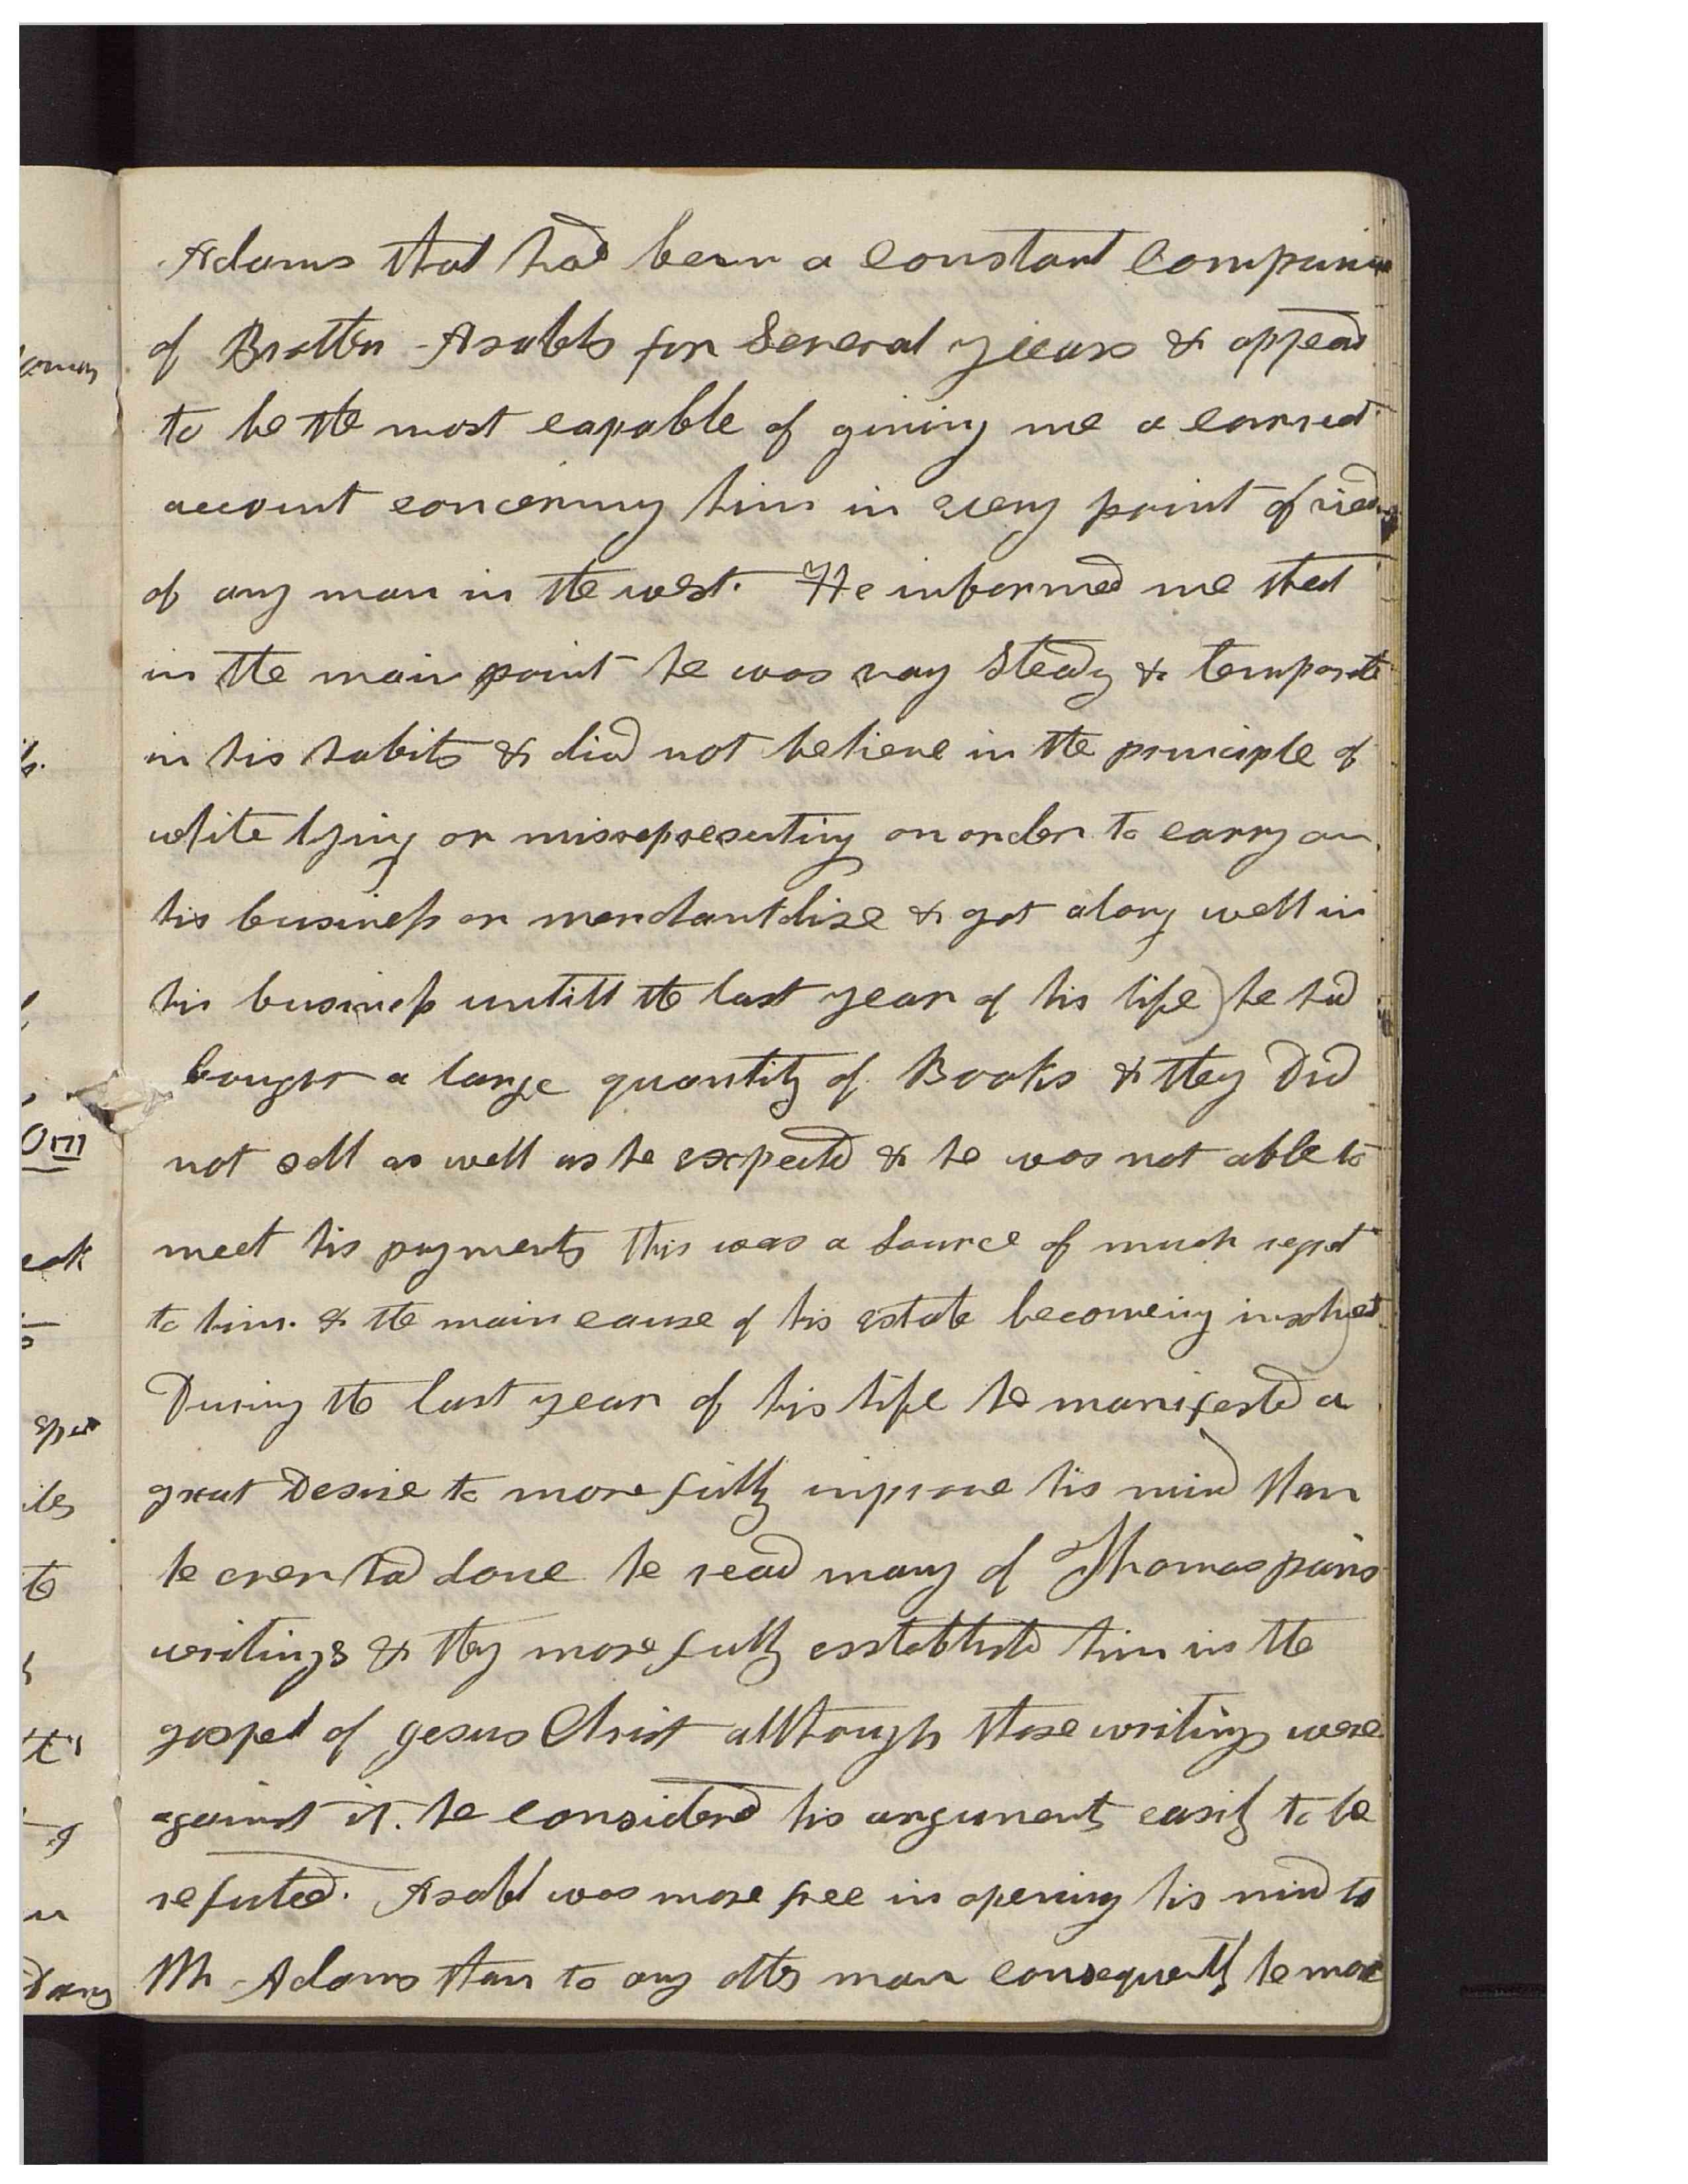 Adams that had been a constant companion
of Brother Asahels for Several yeears & appead
to be the most capable of giving me a correct
account concerning him in every point of view
of any man in the west. He informed me that
in the main point he was vary steady & temperate
in his habits & did not believe in the principle of
white lying or missrepresenting on order to carry on
his business or merchantdise & got along well in
his business untill the last year of his life) he had
bought a large quantity of Books & they Did
not sell as well as he expected & he was not able to
meet his payments this was a source of much regret
to him. & the main cause of his estate becomeing insolvet)
During the last year of his life he manifested a
great Desire to more fully improve his mind than
he ever had done he read many of Thomas pains
writings & they more fully esstablished him in the
gospel of Jesus Christ allthough those writings were
against it. he considered his arguments easily to be
refuted. Asahel was more free in opening his mind to
Mr Adams than to any other man consequently he more
oman
Om
eak
iles
to